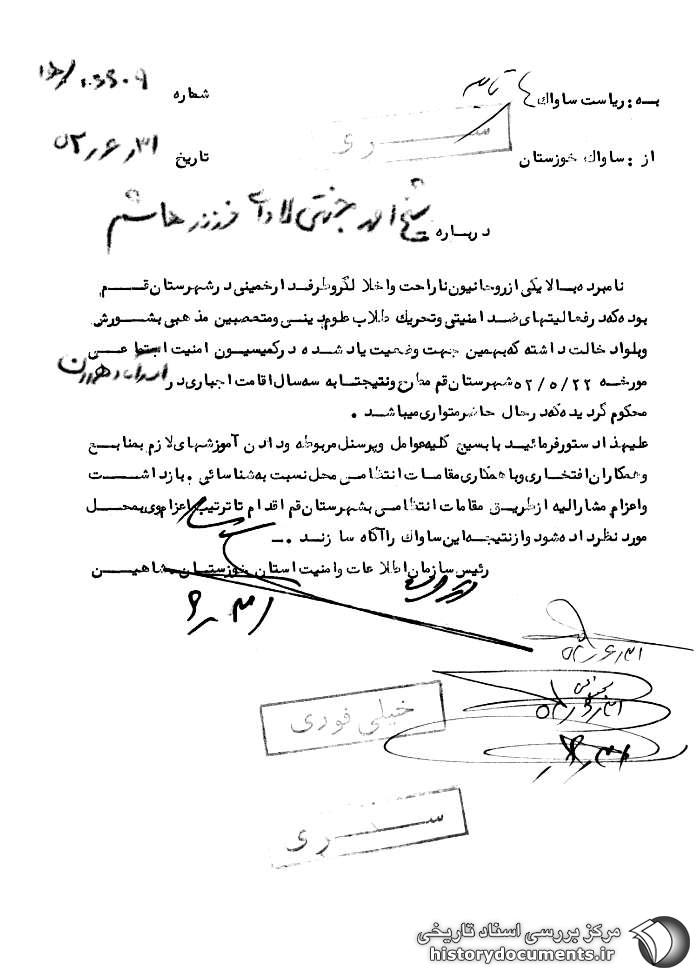 به : ریاست ساواك ۴ تابعه
شماره
سری
از : ساواك خوزستان
تاریخ ۵۲٫۶٫۳۱
درباره شیخ احمد جنتی لادانی فرزند هاشم
نامبرده بالا یکی از روحانیون ناراحت و اخلالگر و طرفدار خمینی در شهرستان قم
بوده که در فعالیتهای ضد امنیتی و تحریك طلاب علوم دینی و متعصبین مذهبی بشورش
و بلوا دخالت داشته که بهمین جهت وضعیت یاد شده در کمیسیون امنیت اجتماعی
مورخه ۵۲/۵/۲۲ شهرستان قم مطرح و نتیجتا به سه سال اقامت اجباری در
محکوم گردیده که در حال حاضر متواری میباشد .
علیهذا دستور فرمائید با بسیج کلیه عوامل و پرسنل مربوطه و دادن آموزشهای لازم بمنابع
و همکاران افتخاری و با همکاری مقامات انتظامی محل نسبت به شناسائی . بازداشت
و اعزام مشارالیه از طریق مقامات انتظامی بشهرستان قم اقدام تا ترتیب اعزام وی بمحل
مورد نظر داده شود و از نتیجه این ساواك را آگاه سازند . ـ
رئیس سازمان اطلاعات و امنیت استان خوزستان . شاهین
۶٫۳۱
۵۲٫۶٫۳۱
خیلی فوری
سری
مرکز بررسی اسناد تاریخی
historydocuments.ir